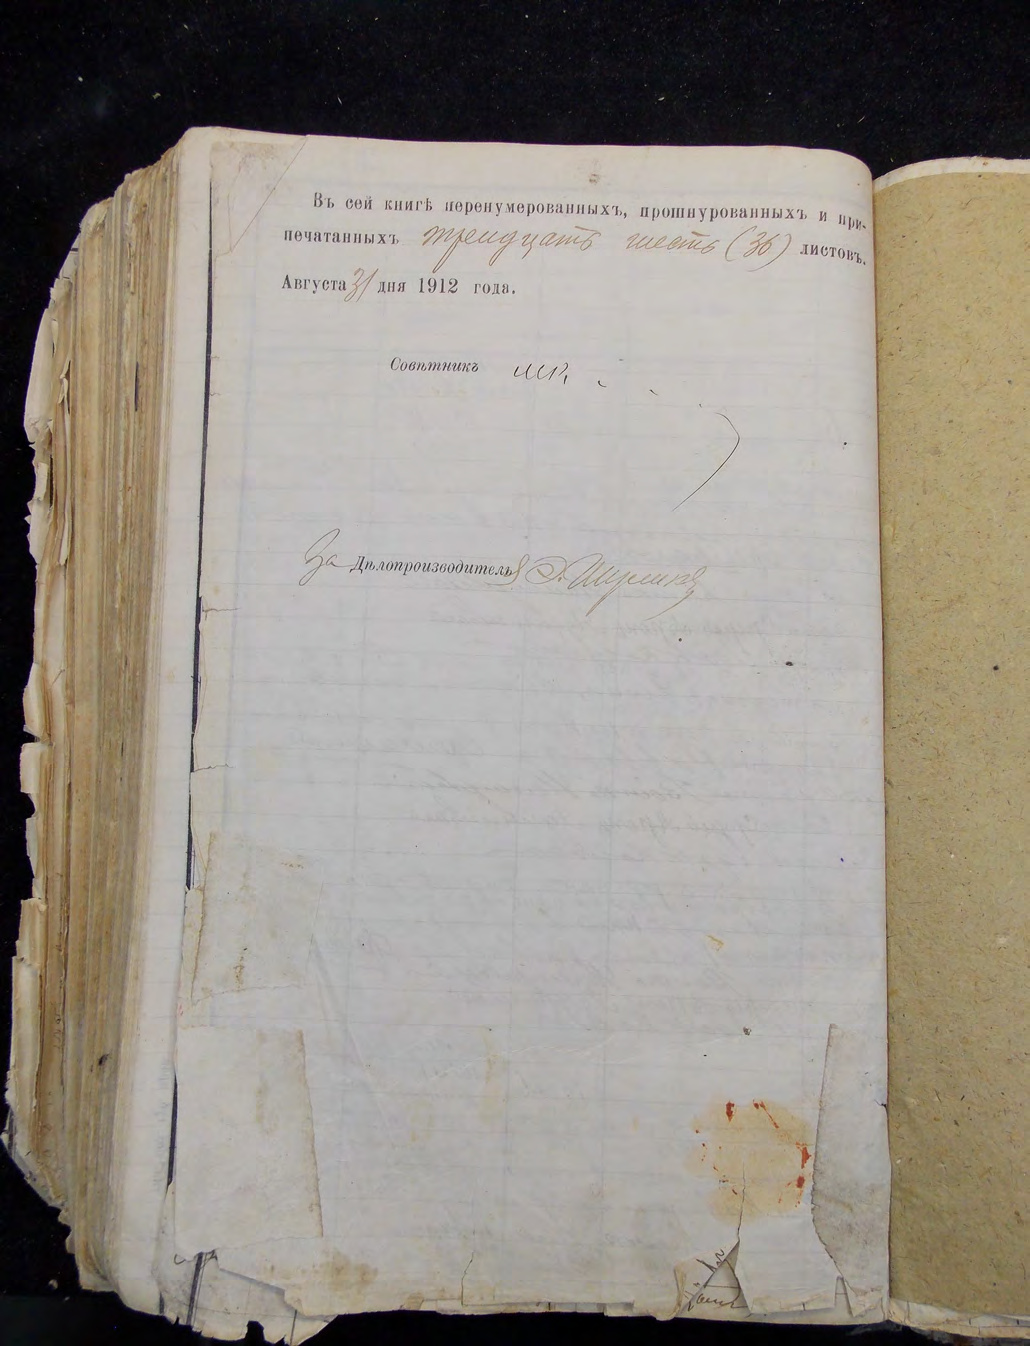 Въ сей книгѣ перенумерованныхъ, прошнурованныхъ и при-
печатанныхъ тридцать шесть (36) листовъ.
Августа 31 дня 1912 года.
Совѣтникъ
За Дѣлопроизводителя